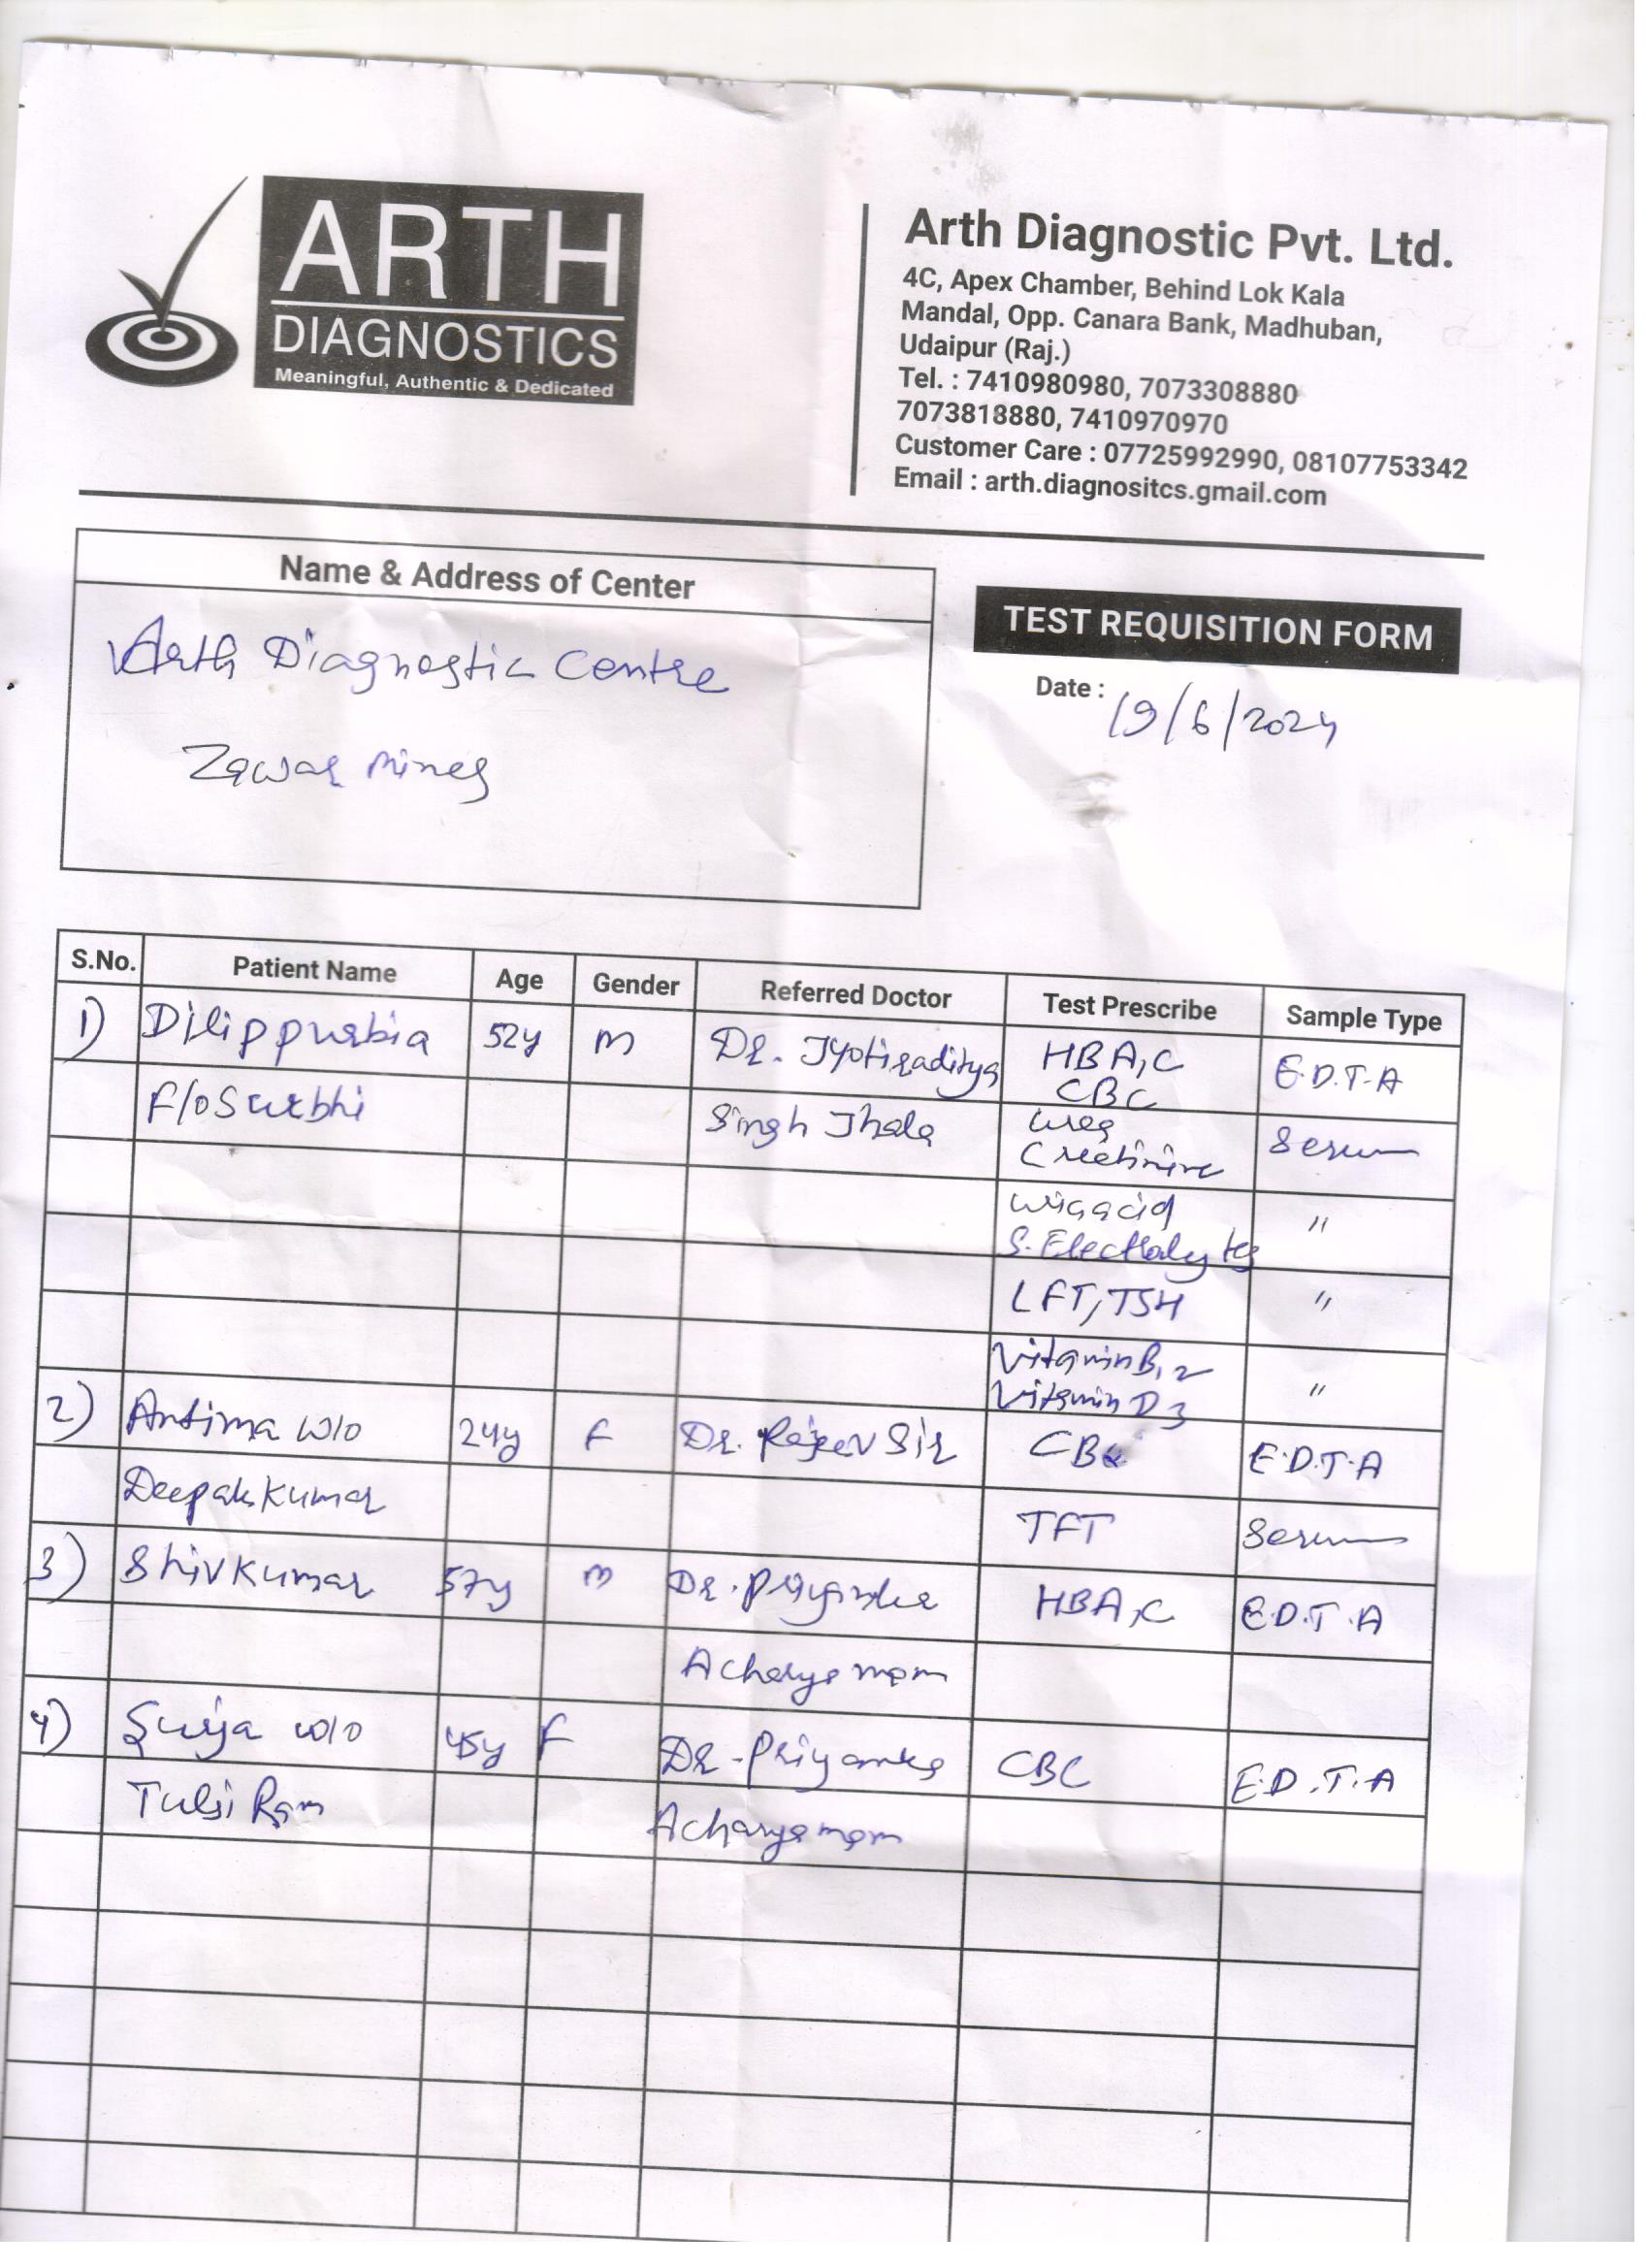 ARTH
DIAGNOSTICS
Meaningful, Authentic & Dedicated
Arth Diagnostic Pvt. Ltd.
4C, Apex Chamber, Behind Lok Kala
Mandal, Opp. Canara Bank, Madhuban,
Udaipur (Raj.)
Tel. : 7410980980, 7073308880
7073818880, 7410970970
Customer Care : 07725992990, 08107753342
Email : arth.diagnositcs.gmail.com
Name & Address of Center
Arth Diagnostic Centre
Zawar mines
TEST REQUISITION FORM
Date : 19/6/2024
S.No. Patient Name Age Gender Referred Doctor Test Prescribe Sample Type
1) Dilip purbia 52y m Dr. Jyotiraditya HBA1C E.D.T.A
CBC
F/o Surbhi Singh Jhala urea Serum
Creetinine
uric acid "
S. Electrolytes
LFT, TSH "
Vitamin B12
Vitamin D3 "
2) Antima w/o 24y F Dr. Rajeev Sir CBC E.D.T.A
Deepak Kumar TFT Serum
3) Shiv Kumar 57y m Dr. Priyanka HBA1C E.D.T.A
Acharya mam
4) Surja w/o 45y F Dr. Priyanka CBC E.D.T.A
Tulsi Ram Acharya mam